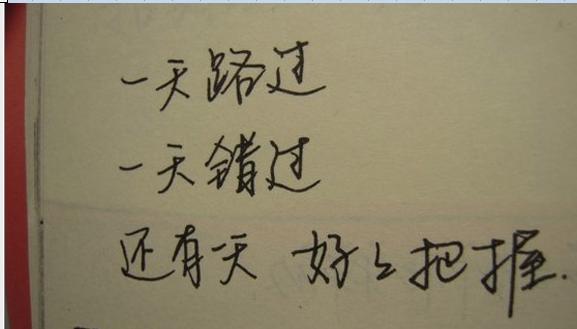 一天路过
一天错过
还有一天 好好把握.